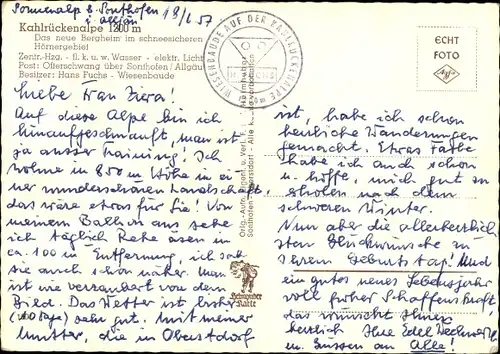 Sonnenalp b. Sonthofen 19/6.57
i. Allgäu
Kahlrückenalpe 1200 m
Das neue Bergheim im schneesicheren
Hörnergebiet
Zentr.-Hzg. - fl. k. u. w. Wasser - elektr. Licht
Post: Ofterschwang über Sonthofen/Allgäu
Besitzer: Hans Fuchs - Wiesenbaude
WIESENBAUDE AUF DER KAHLRÜCKENALPE
H. FUCHS
ECHT
FOTO
Agfa
Liebe Frau
Auf diese Alpe bin ich
hinaufgeschnauft, man ist
ja ausser Training! Ich
wohne in 850 m Höhe in ei-
ner wunderschönen Landschaft,
das wäre etwas für Sie! Von
meinem Balkon aus sehe
ich täglich Rehe äsen in
ca. 100 m Entfernung, ich sah
sie auch schon näher. Man
ist wie verzaubert von dem
Bild. Das Wetter ist bisher
(10 Tage) sehr gut. Mit meiner
Mutter, die in Oberstdorf
Heimhuber
Karte
ist, habe ich schon
herrliche Wanderungen
gemacht. Etwas Farbe
habe ich auch schon
u. hoffe, mich gut zu
erholen nach dem
schweren Winter.
Nun aber die allerherzlich-
sten Glückwünsche zu
Ihrem Geburtstag! Und
ein gutes neues Lebensjahr
voll froher Schaffenskraft
das wünscht Ihnen
herzlich Ihre Edel
m. Grüssen an Alle!